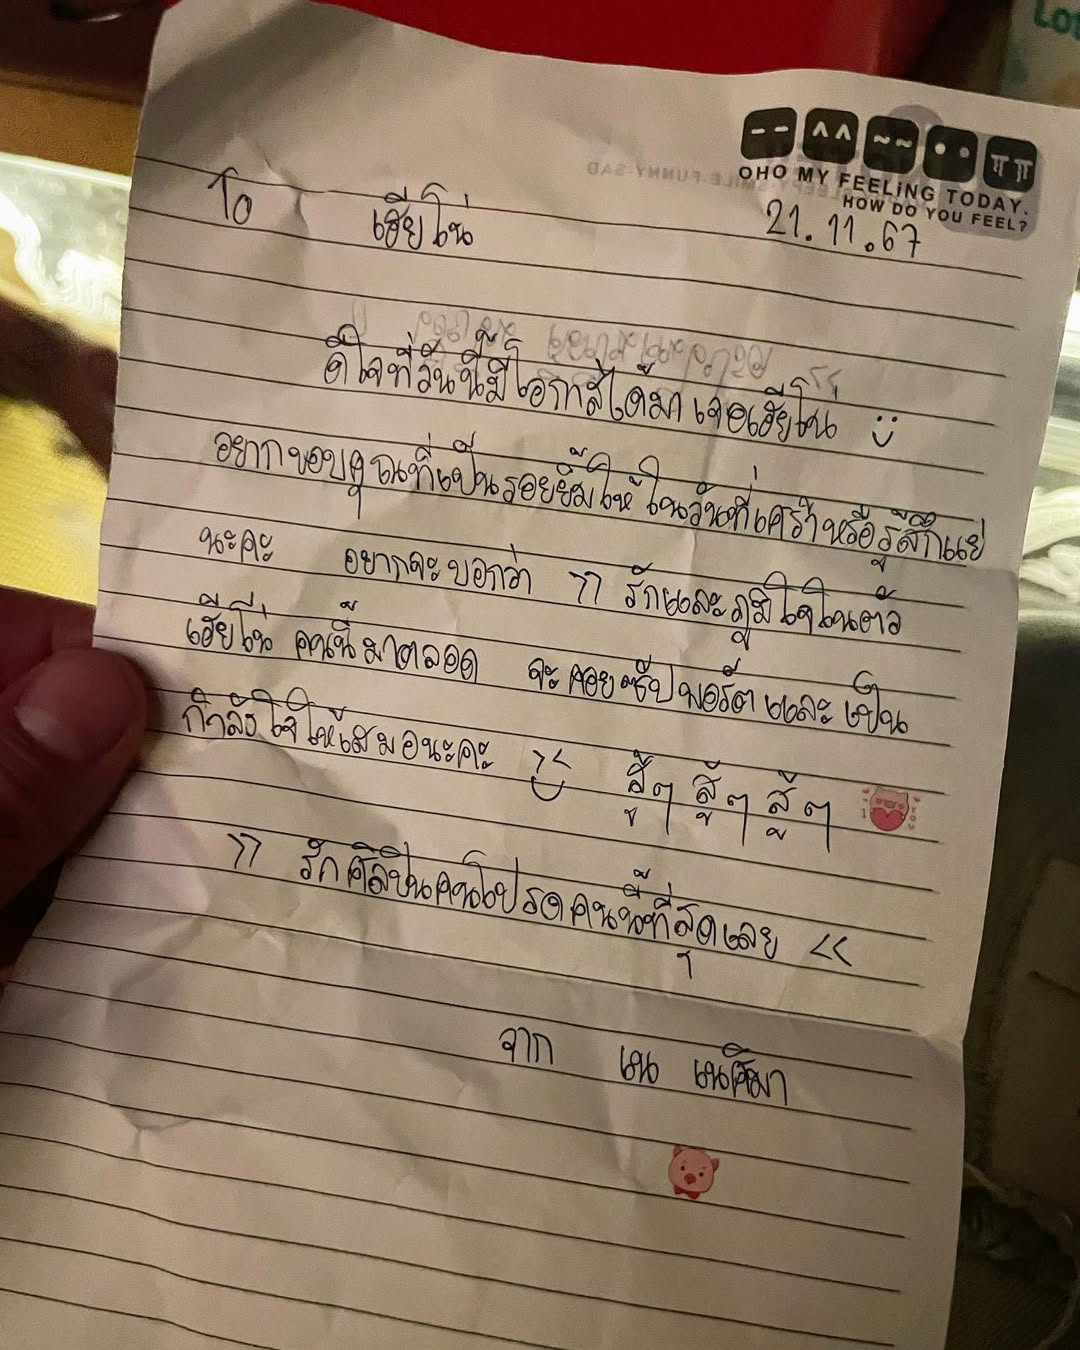 OHO MY FEELING TODAY.
HOW DO YOU FEEL?
To เฮียโน่
21.11.67
ดีใจที่วันนี้มีโอกาสได้มาเจอเฮียโน่
อยากขอบคุณที่เป็นรอยยิ้มให้ในวันที่เศร้าหรือรู้สึกแย่
นะคะ อยากจะบอกว่า >> รักและภูมิใจในตัว
เฮียโน่ คนนี้มาตลอด จะคอยซัปพอร์ตและเป็น
กำลังใจให้เสมอนะคะ สู้ๆ สู้ๆ สู้ๆ
>> รักศิลปินคนโปรดคนนี้ที่สุดเลย <<
จาก เนเน่